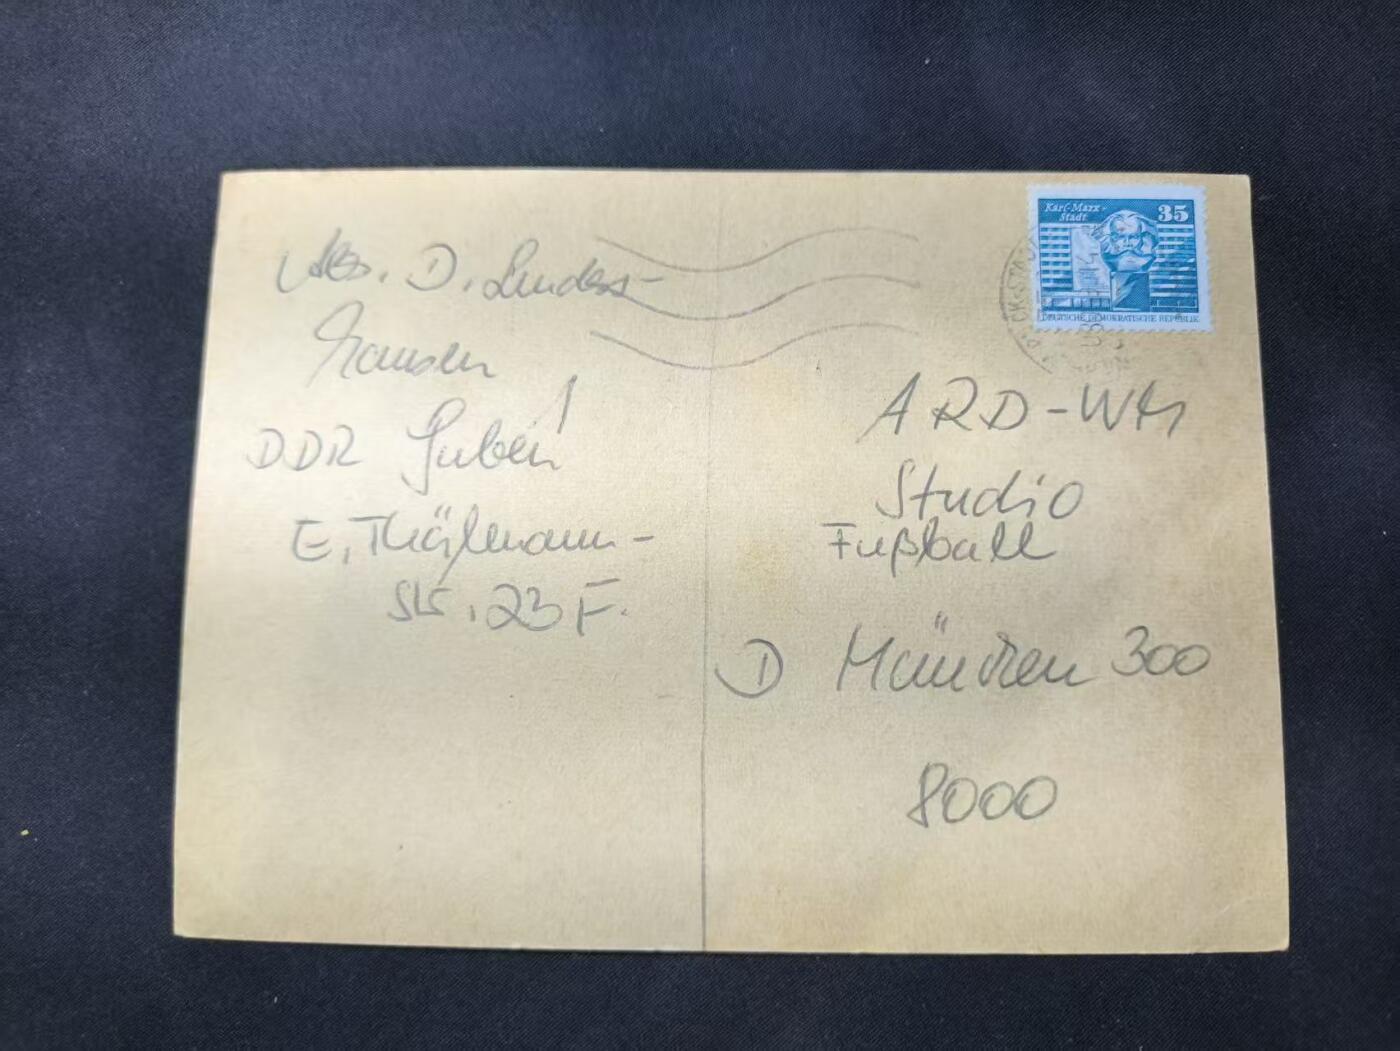 Abs. D. Linders-
hausen
DDR Guben
E. Thälmann-
Str. 23 F.
Karl-Marx-
Stadt
35
DEUTSCHE DEMOKRATISCHE REPUBLIK
ARD-WM
Studio
Fußball
D München 300
8000